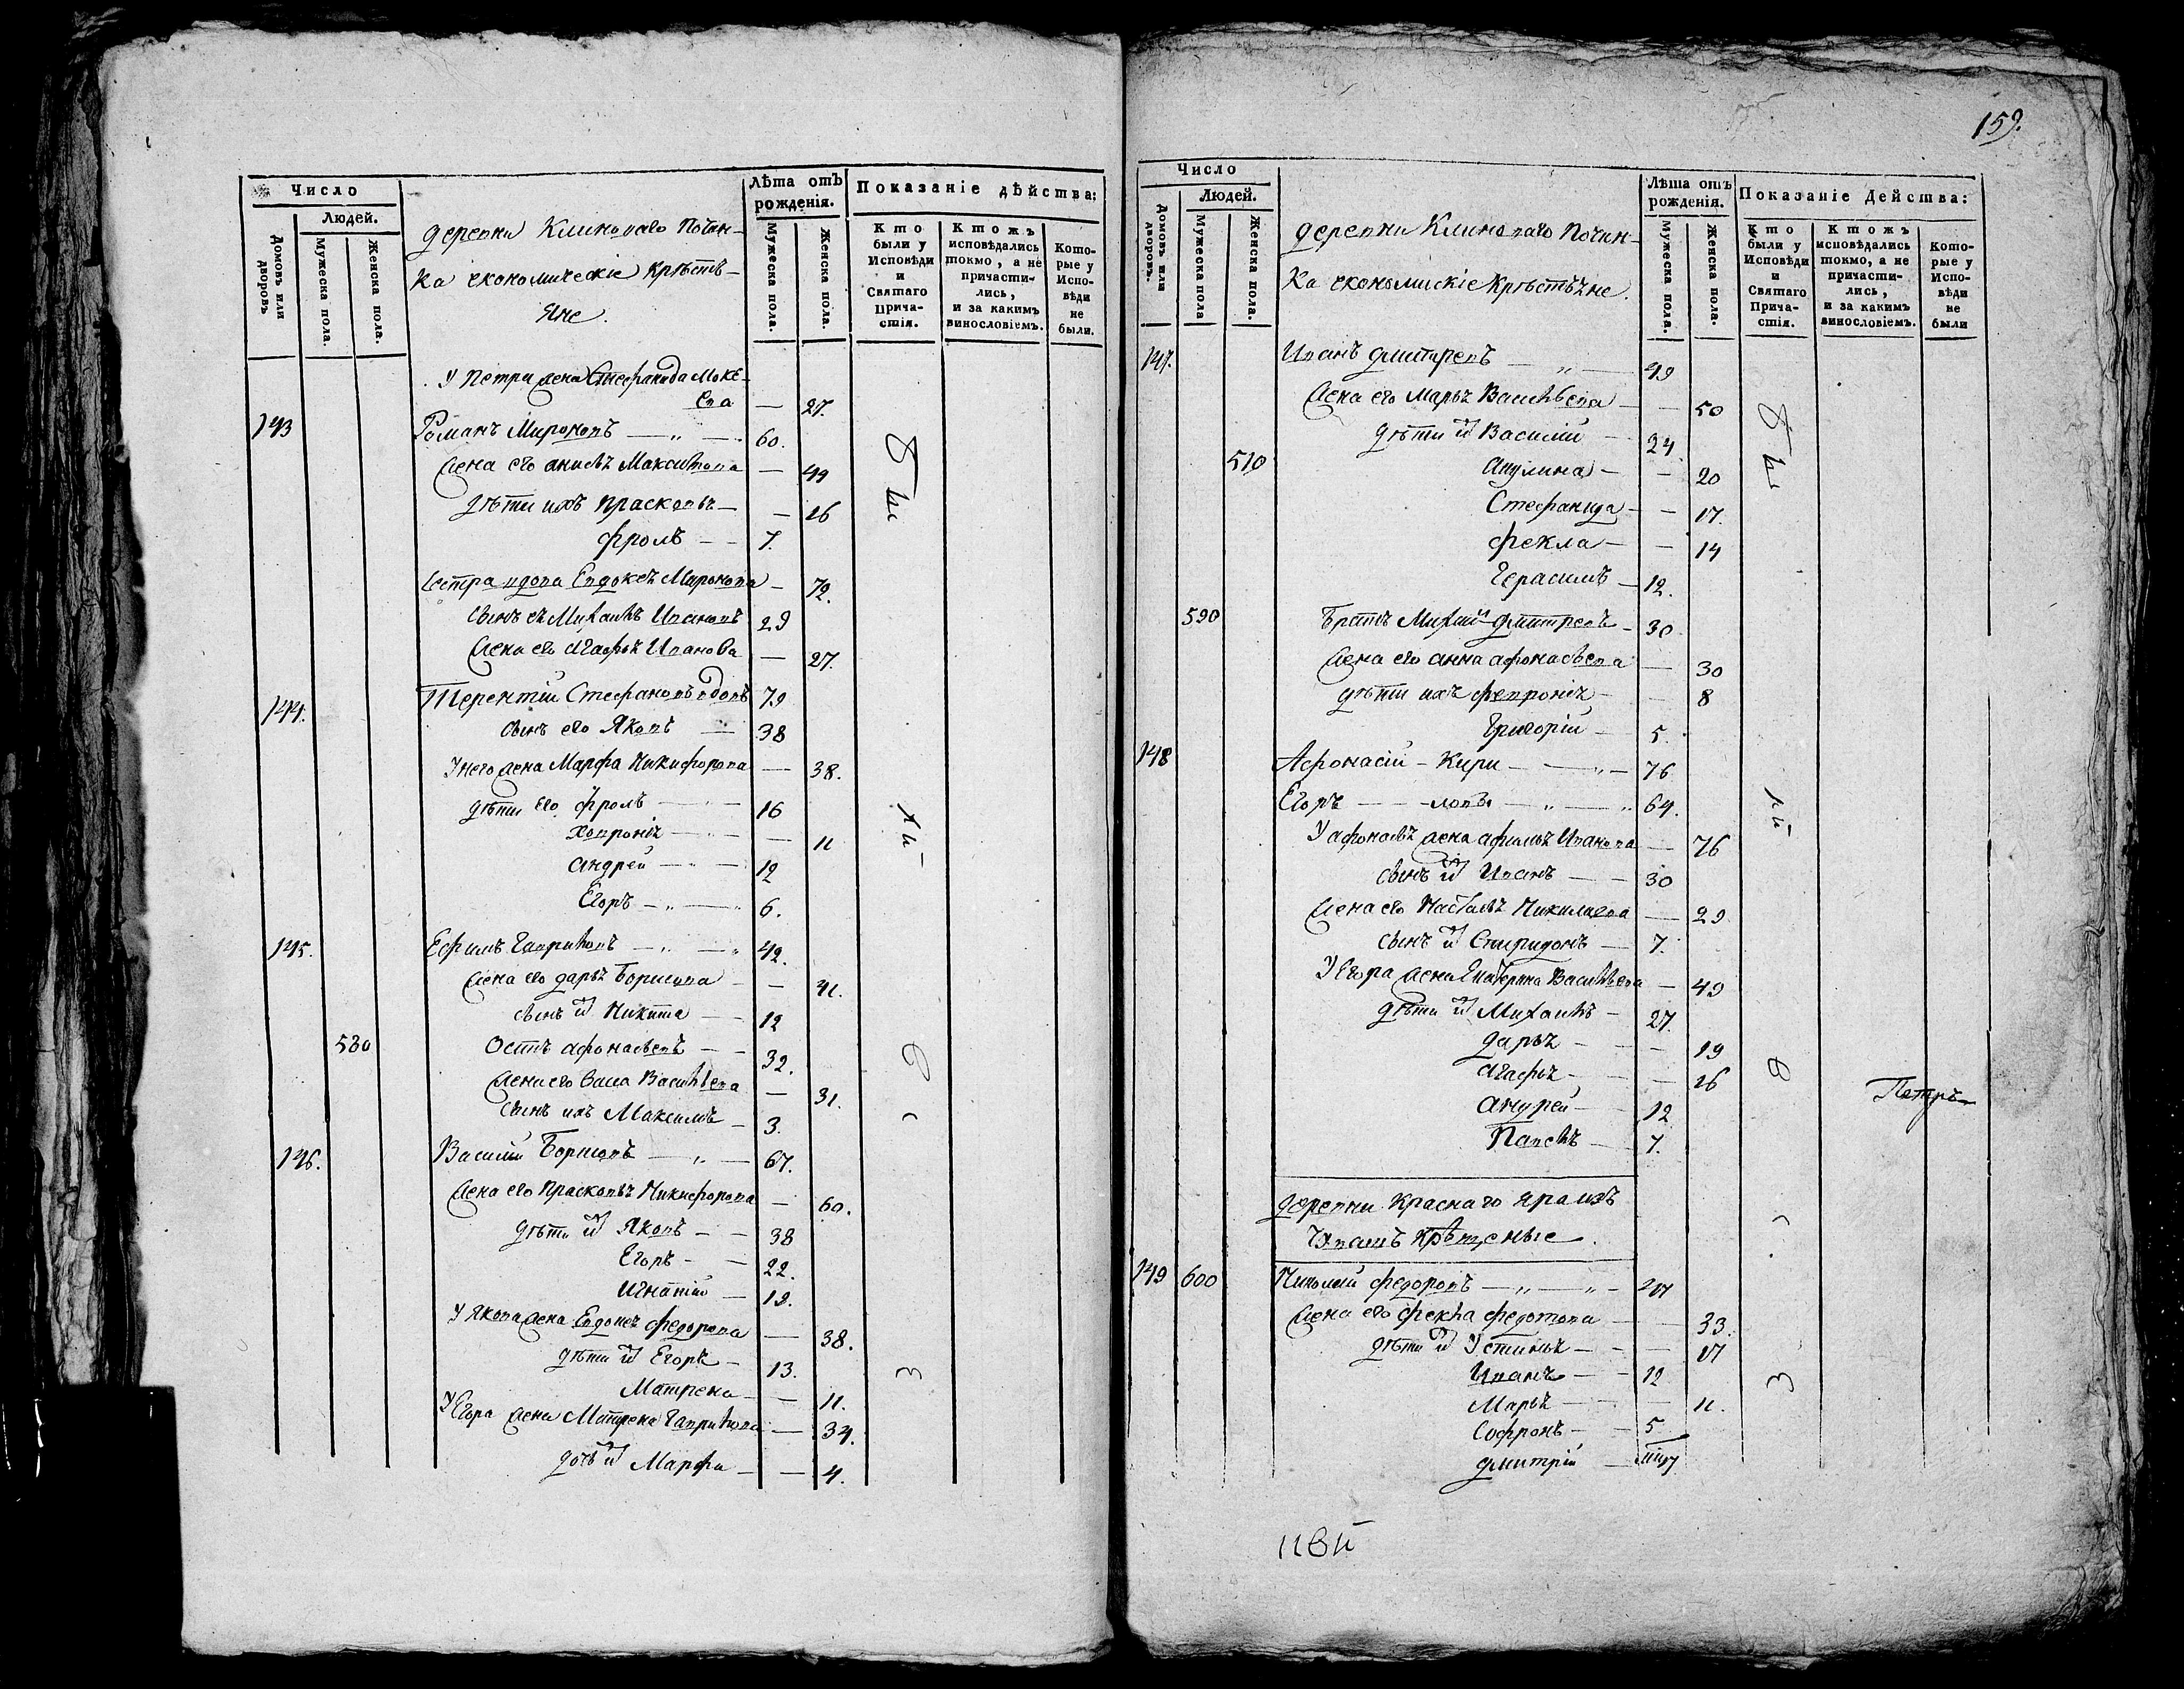 Число
Людей.
Домовъ или дворовъ
Мужеска пола.
Женска пола.
деревни Клиноваго Почин-
ка економическіе крѣстъ-
яне.
Лѣта отъ рожденія.
Мужеска пола.
Женска пола.
Показаніе дѣйства:
Кто были у Исповѣди и Святаго Причастія.
Ктожъ исповѣдались токмо, а не причастились, и за какимъ винословіемъ.
Которые у Исповѣди не были.
У Петра жена Стефанида Моке-
ева — 27.
143 Романъ Мироновъ — 60.
жена его анисья Максимова — 49
дѣти ихъ Прасковья — 16
фролъ — 7.
Сестра вдова Евдокея Миронова — 72.
сынъ ея Михаилъ Ивановъ 29
жена его Агафья Иванова — 27.
144. Терентій Стефановъ вдовъ 79
сынъ его Яковъ — 38
У него жена Марфа Никифорова — 38.
дѣти его фролъ — 16
Ховронія — 11
андрей — 12
Егоръ — 6.
145. Ефимъ Гавриловъ — 42.
жена его дарья Борисова — 41.
сынъ их Никита — 12
580 Остъ афонасьевъ — 32.
жена его Васса Васильева — 31.
сынъ ихъ Максимъ — 3.
146. Василій Борисовъ — 67.
жена его Прасковья Никифорова — 60.
дѣти их Яковъ — 38
Егоръ — 22.
Игнатій — 19.
У Якова жена Евдокея федорова — 38.
дѣти их Егоръ — 13.
Матрена — 11.
У Егора жена Матрена Гаврилова — 34.
дочь их Марфа — 4.
Бы
ли
О
С
З
159.
Число
Людей.
Домовъ или дворовъ.
Мужеска пола
Женска пола.
деревни Клиноваго Почин-
ка економискіе Крѣстъяне.
Лѣта отъ рожденія.
Мужеска пола.
Женска пола.
Показаніе Действа:
Кто были у Исповѣди и Святаго Причастія.
Ктожъ исповѣдались токмо, а не причастились, и за какимъ винословіемъ.
Которые у Исповѣди не были
147. Иванъ дмитревъ — 49
жена его Марья Васильева — 50
дѣти их Василій — 24
510 Акулина — 20
Стефанида — 17.
фекла — 14
Герасимъ — 12.
590 Братъ Михаи дмитревъ — 30
жена его анна афонасьева — 30
дѣти ихъ февронія — 8
Григорій — 5.
148 Афонасій — Кири — 76
Егоръ — ловы — 64.
У афонасья жена афимья Иванова — 76
сынъ их Иванъ — 30
жена его Настасья Николаева — 29
сынъ их Спиридонъ — 7.
У Егора жена Екатерина Васильева — 49
дѣти их Михаилъ — 27.
дарья — 19
Агафья — 16
андрей — 12
Павелъ — 7.
деревни Краснаго яра изъ
чювашъ крѣщеные.
149 600 Николай федоровъ —
жена его фекла федотова — 33.
дѣти их Устинья — 17
Иванъ — 12
Марья — 11.
Софронъ — 5
дмитрій —
Бы
ли
О
С
З
Петръ